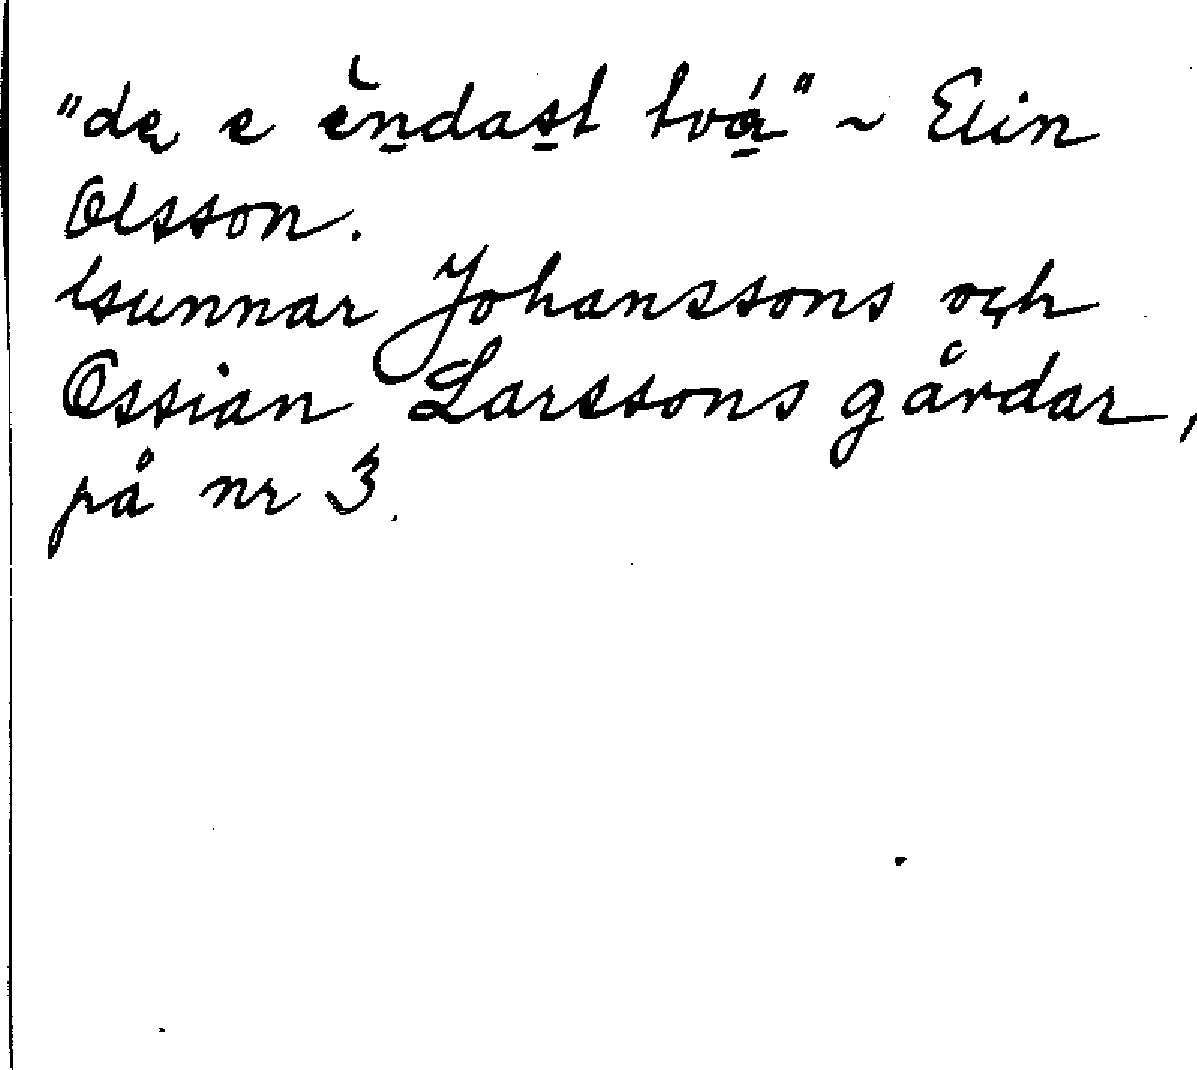 "dę e èn̲das̲t tvǻ̲" ~ Elin
Olsson.
Gunnar Johanssons och
Ossian Larssons gårdar,
på nr 3.